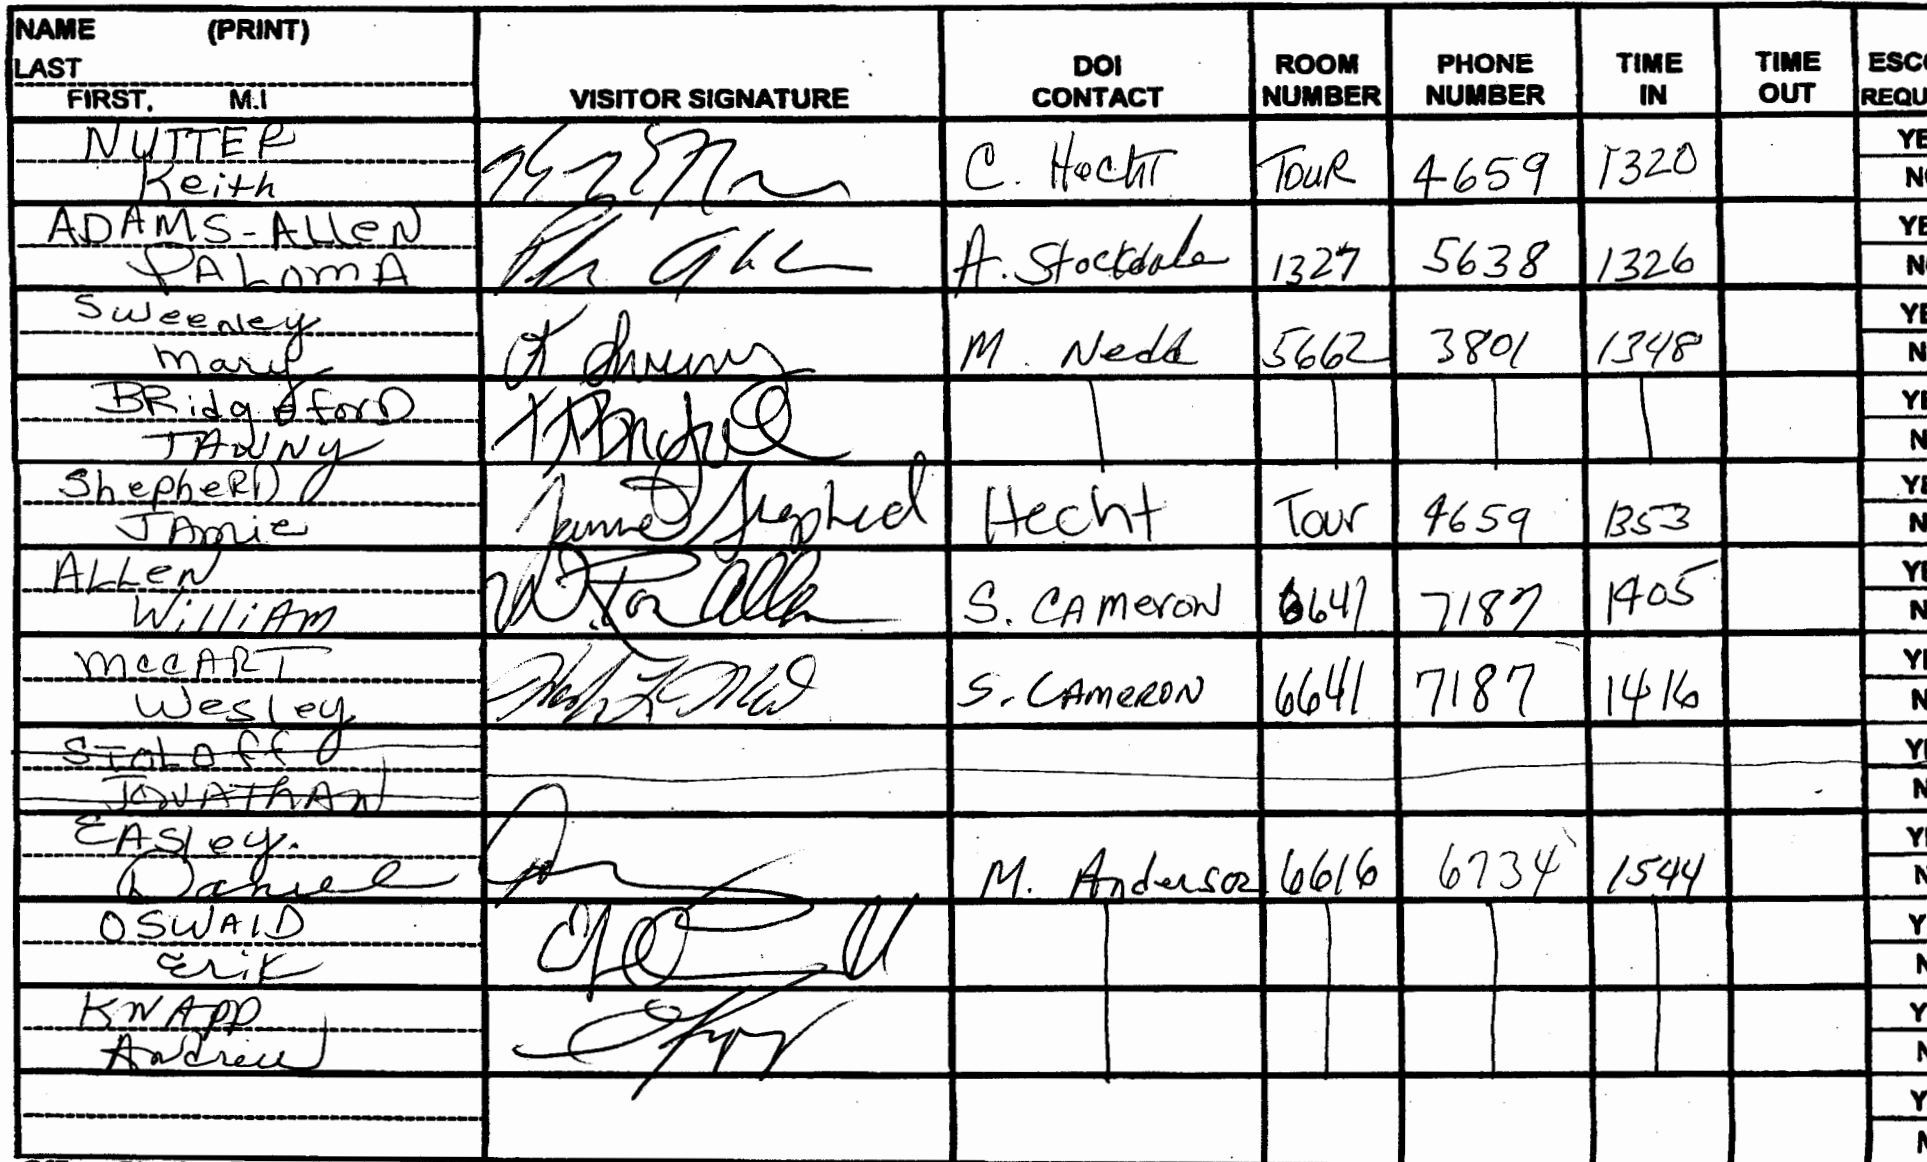 NAME (PRINT)
LAST
FIRST, M.I
VISITOR SIGNATURE
DOI CONTACT
ROOM NUMBER
PHONE NUMBER
TIME IN
TIME OUT
NUTTER
Keith
C. Hecht Tour 4659 1320
ADAMS-ALLeN
PALomA
A. Stockdale 1327 5638 1326
Sweeney
Mary
M. Nedd 5662 3801 1348
BRidgeforD
TAWNy
ShepheRD
JAmie
Jamie Shepherd
Hecht Tour 4659 1353
ALLeN
WilliAm
S. CAmeroN 6641 7187 1405
mccART
Wesley
S. CAmeRON 6641 7187 1416
JONAThAN
EASley.
Daniel
M. Anderson 6616 6734 1544
OSWAlD
Erik
KNApp
Andrew